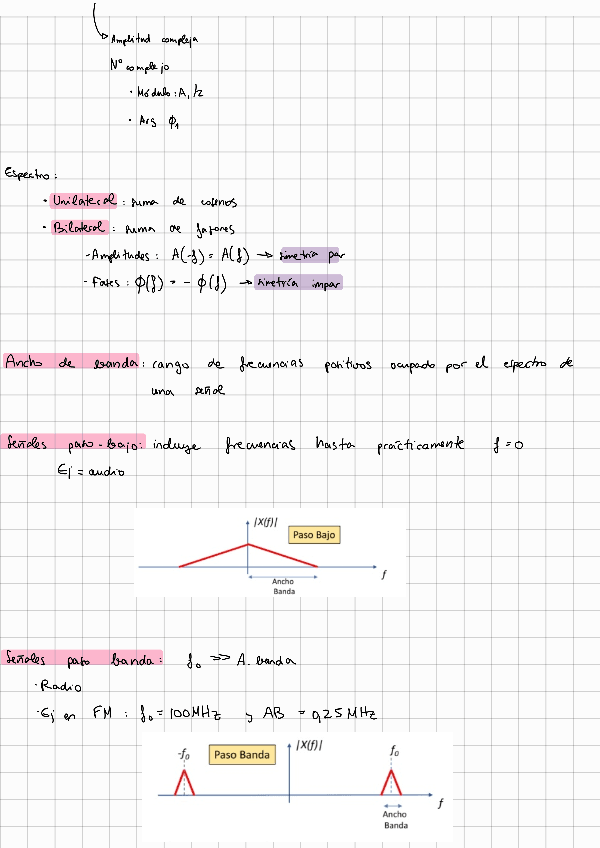 Amplitud compleja
Nº complejo
· Módulo: A₁/2
· Arg ϕ₁
Espectro:
· Unilateral: suma de cosenos
· Bilateral: suma de fasores
- Amplitudes: A(-f) = A(f) → simetría par
- Fases: ϕ(f) = - ϕ(f) → simetría impar
Ancho de banda: rango de frecuencias positivas ocupado por el espectro de
una señal
Señales paso-bajo: incluye frecuencias hasta prácticamente f=0
Ej = audio
|X(f)|
Paso Bajo
f
Ancho
Banda
Señales paso banda: f₀ >> A. banda
· Radio
· Ej en FM: f₀ = 100MHz y AB = 0,25 MHz
-f₀
Paso Banda
|X(f)|
f₀
f
Ancho
Banda